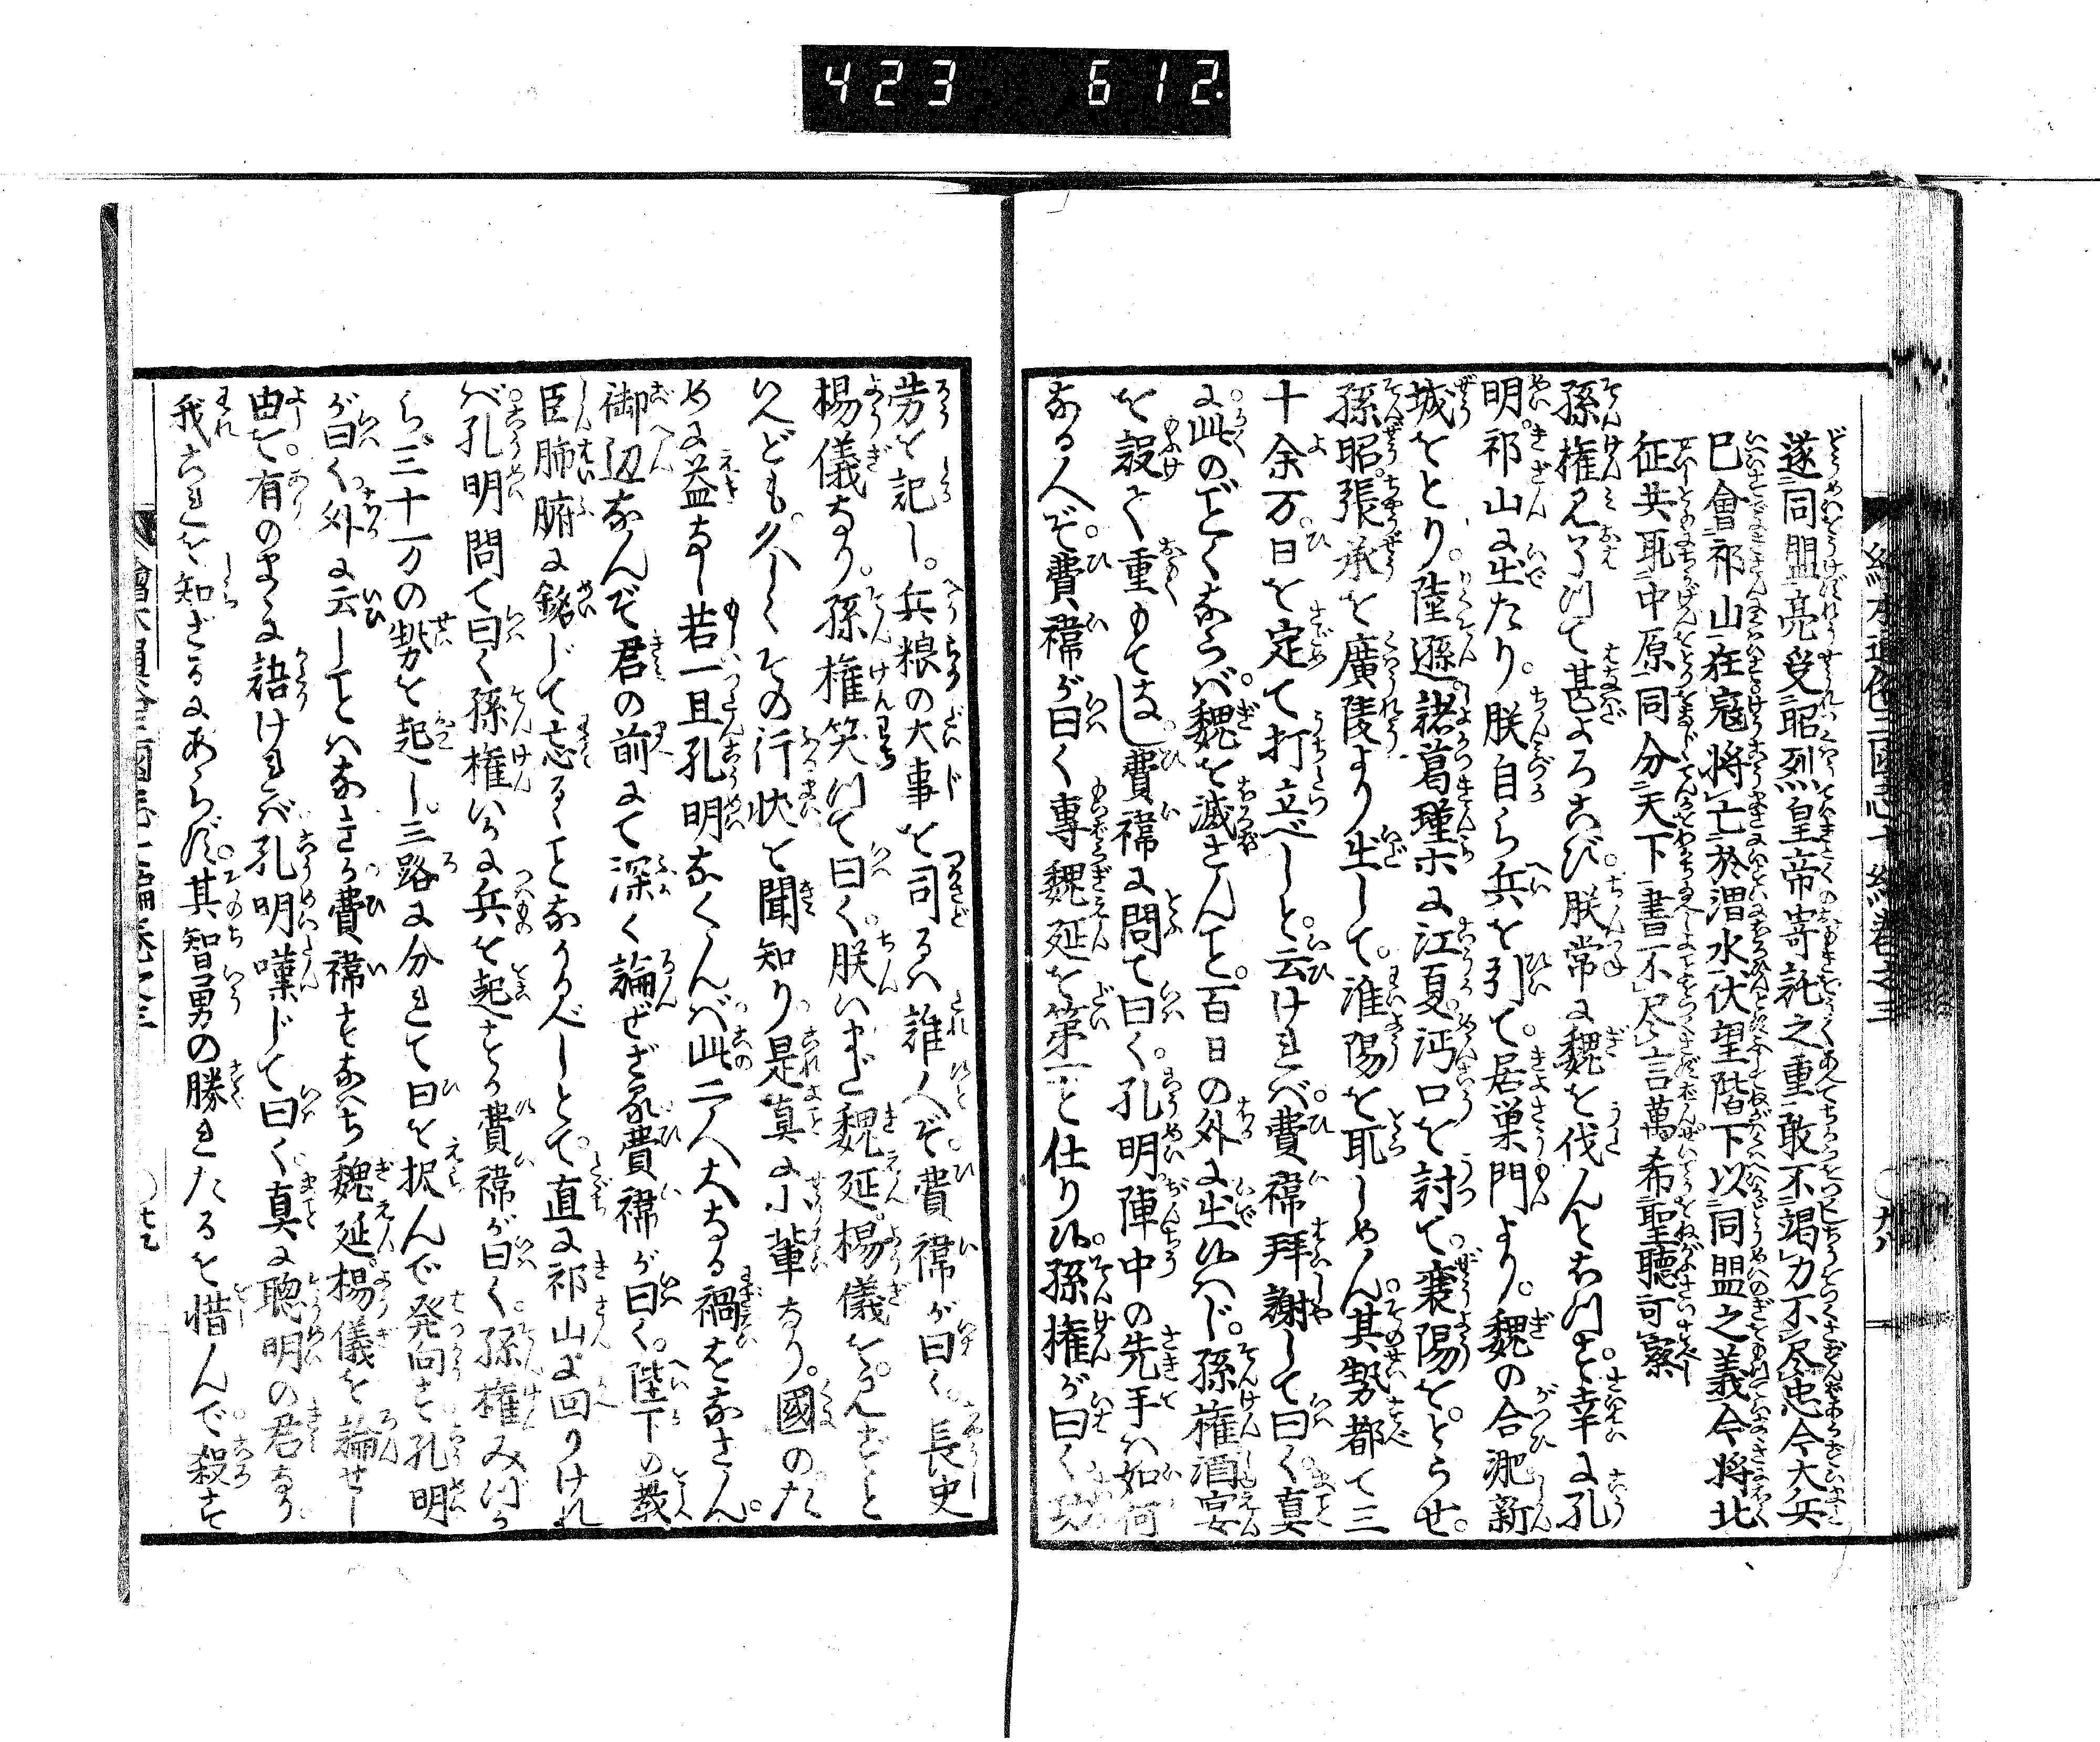 423 612
遂同盟亮受昭烈皇帝寄託之重敢不竭力不尽忠今大兵
已會祁山在寇将亡於渭水伏望階下以同盟之義今将北
征共耴中原同分天下書不尽言萬希聖聽可察
孫権見了つて甚よろこび朕常に魏を伐んとおもつを幸に孔
明祁山に出たり。朕自ら兵を引て。居巣門より。魏の合淝新
城をとり。陸遜。諸葛瑾ホに江夏。沔口を討て。襄陽をとらせ。
孫昭。張承を廣陵より出して。淮陽を耴しめん。其勢都て三
十余万。日を定て打立べしと。云ければ。費禕拜謝して曰く。真
に此のごとくならば。魏を滅さんと。百日の外に出候へじ。孫権酒宴
を設て重くもてなし費禕に問て曰く。孔明陣中の先手ハ如何
なる人ぞ。費禕が曰く専魏延を第一と仕り候。孫権が曰く功
労を記し。兵粮の大事を司るハ誰人ぞ。費禕が曰く。長史
楊儀なり。孫権笑つて曰く。朕いまだ魏延。楊儀を。見ずと
いへども。久しくその行状を聞知り。是真に小輩なり。國のた
めに益なし若一旦孔明なくんバ此二人大なる禍をなさん。
御辺なんぞ君の前にて深く論ぜざる費禕が曰く。陛下の教
臣肺腑に銘じて忘るゝことなかるべしとて。直に祁山に回りけれ
バ。孔明問て曰く孫権いかに兵を起せる費禕が曰く。孫権みづか
ら。三十万の勢を起し。三路に分れて日を択んで発向す孔明
が曰く。外に云しことハなきか費禕すなハち魏延。楊儀を論ぜし
由を。有のまゝに語ければ。孔明嘆じて曰く。真に聰明の君なり。
我これを知ざるにあらず。其智勇の勝れたるを惜んで。殺さず